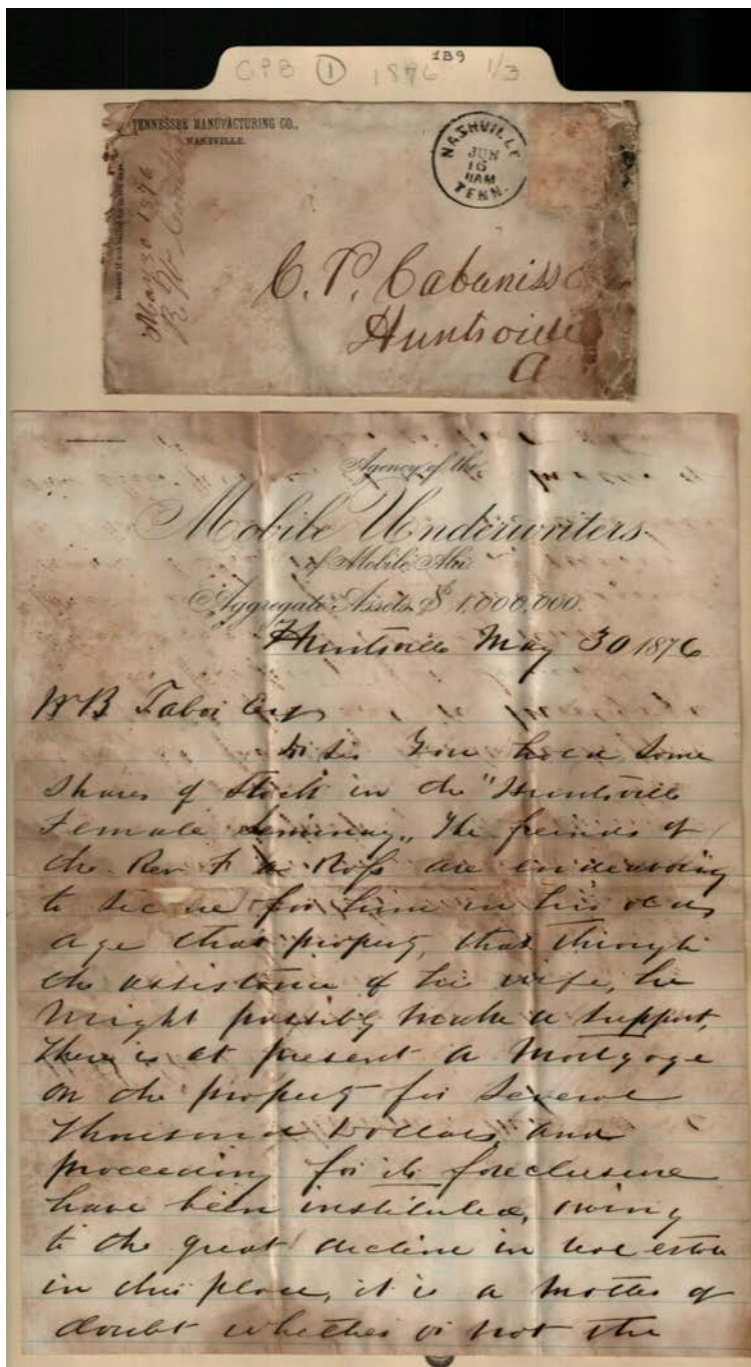 GPB ① 1876 1B9 1/3
TENNESSEE MANUFACTURING CO.,
NASHVILLE.
NASHVILLE
JUN
16
11AM
TENN.
May 30 1876
C. P. Cabaniss
Huntsville
A
Agency of the
Mobile Underwriters
of Mobile, Ala.
Aggregate Assets $1,000,000.
Huntsville May 30 1876
W B Tabor Esq
Dr Sir You hold some
Shares of Stock in the "Huntsville
Female Seminary" The friends of
the Rev F A Ross are endeavoring
to secure for him in his old
age that property, that through
the assistance of his wife, he
might possibly make a support,
There is at present a Mortgage
on the property for several
Thousand Dollars, and
proceeding for its foreclosure
have been instituted, owing
to the great decline in real estate
in this place, it is a matter of
doubt whether or not the